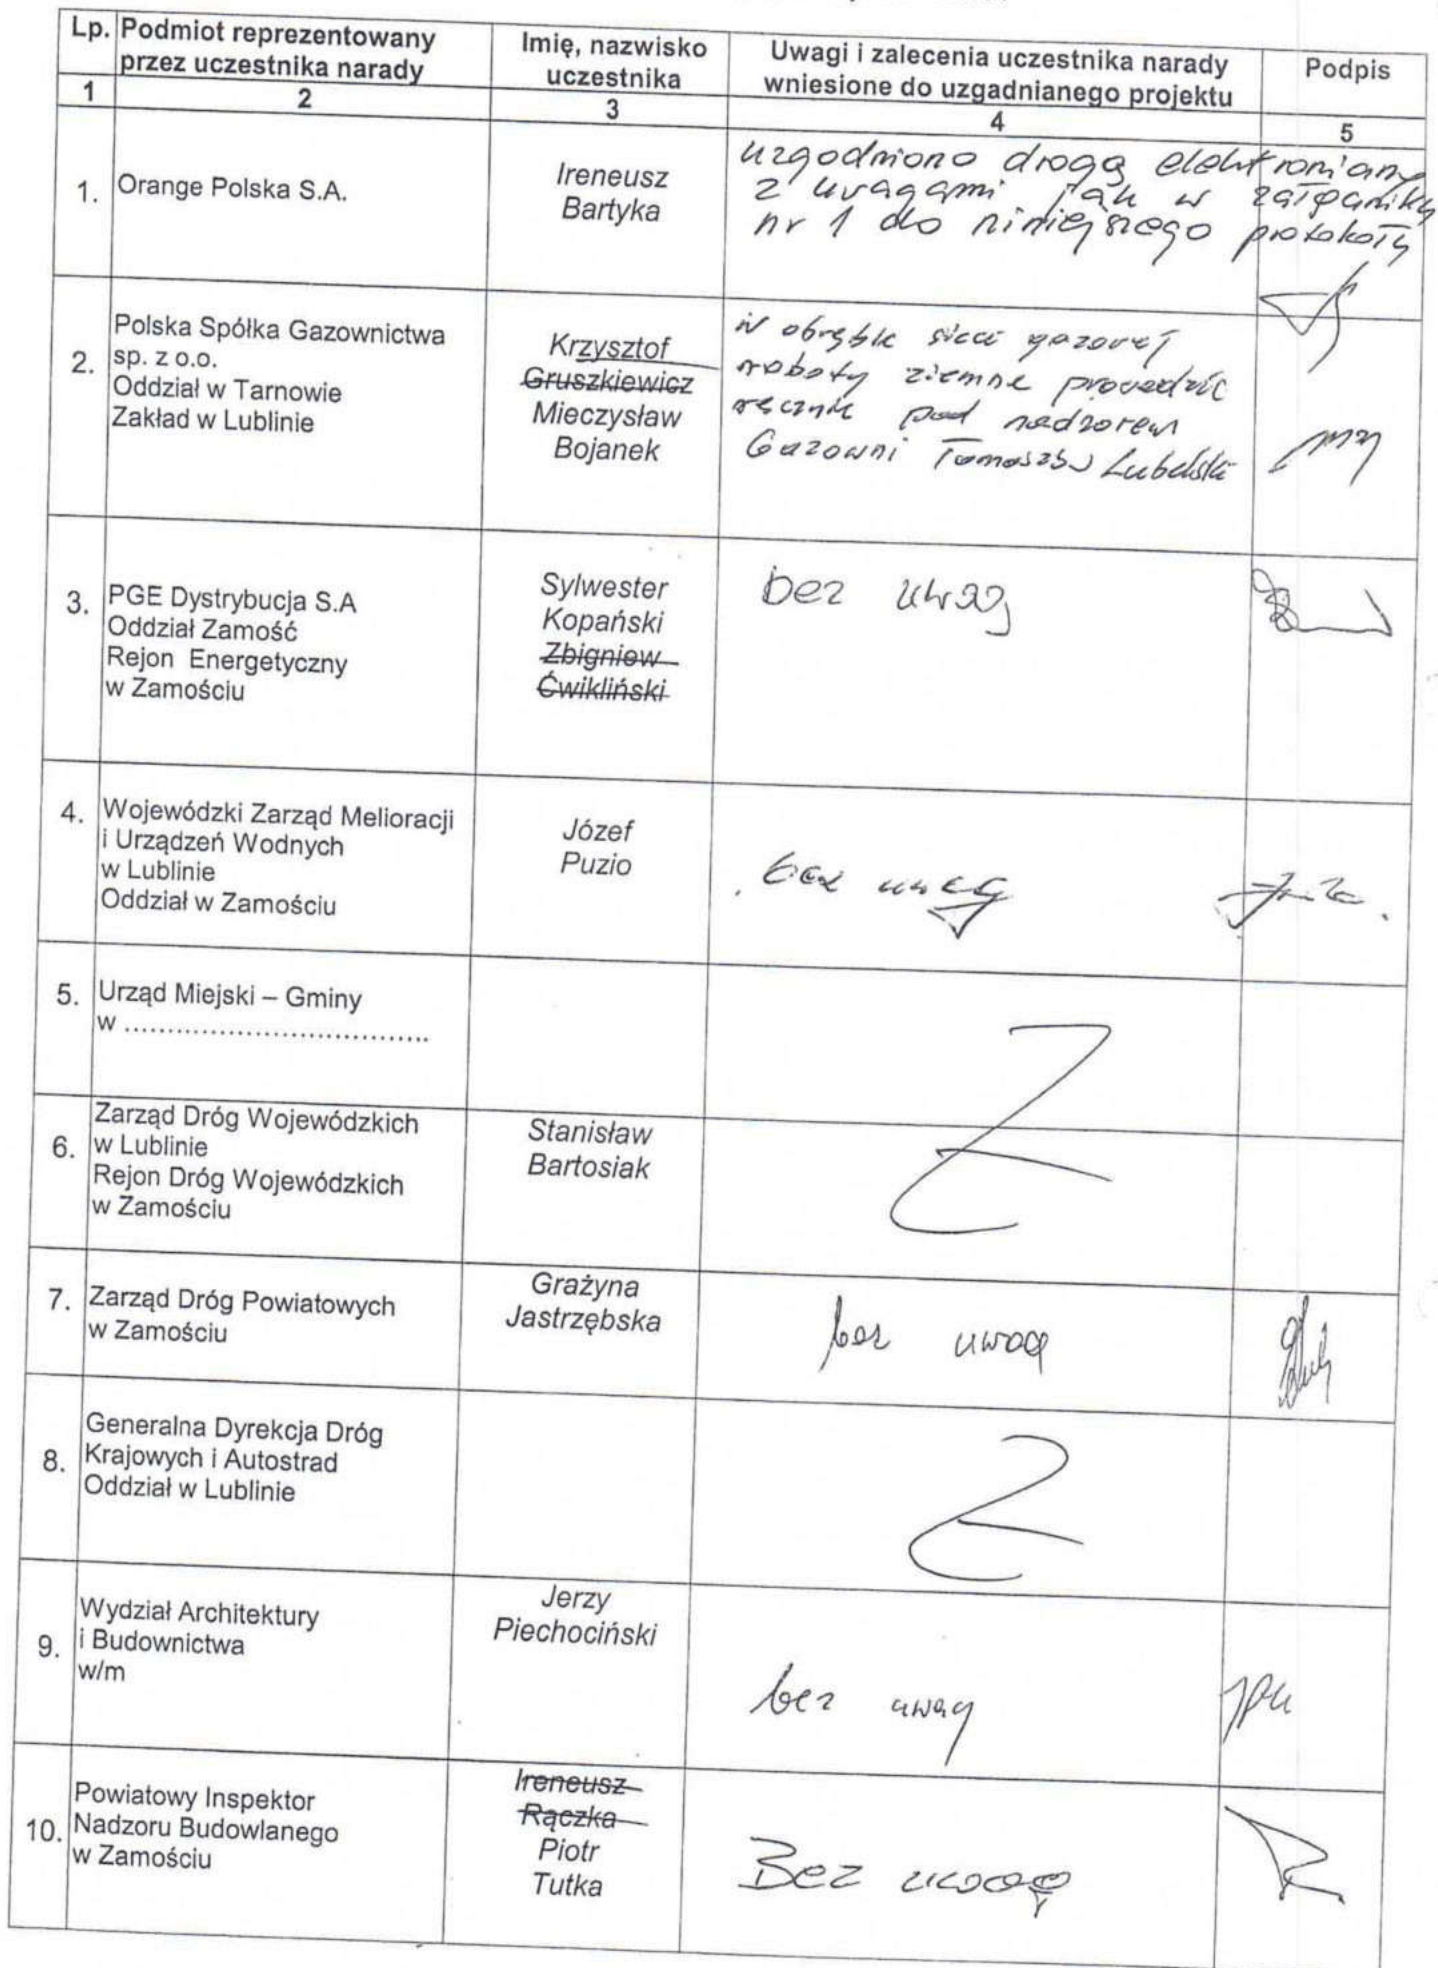 Lp. Podmiot reprezentowany przez uczestnika narady
Imię, nazwisko uczestnika
Uwagi i zalecenia uczestnika narady wniesione do uzgadnianego projektu
Podpis
1 2 3 4 5
1. Orange Polska S.A.
Ireneusz
Bartyka
uzgodniono drogą elektroniczną
z uwagami jak w załączniku
nr 1 do niniejszego protokołu
2.
Polska Spółka Gazownictwa
sp. z o.o.
Oddział w Tarnowie
Zakład w Lublinie
Krzysztof
Gruszkiewicz
Mieczysław
Bojanek
W obrębie sieci gazowej
roboty ziemne prowadzić
ręcznie pod nadzorem
Gazowni Tomaszów Lubelski
3. PGE Dystrybucja S.A
Oddział Zamość
Rejon Energetyczny
w Zamościu
Sylwester
Kopański
Zbigniew
Ćwikliński
bez uwag
4. Wojewódzki Zarząd Melioracji
i Urządzeń Wodnych
w Lublinie
Oddział w Zamościu
Józef
Puzio
bez uwag
5. Urząd Miejski – Gminy
w ..................................
6.
Zarząd Dróg Wojewódzkich
w Lublinie
Rejon Dróg Wojewódzkich
w Zamościu
Stanisław
Bartosiak
7. Zarząd Dróg Powiatowych
w Zamościu
Grażyna
Jastrzębska
bez uwag
8.
Generalna Dyrekcja Dróg
Krajowych i Autostrad
Oddział w Lublinie
9.
Wydział Architektury
i Budownictwa
w/m
Jerzy
Piechociński
bez uwag
10.
Powiatowy Inspektor
Nadzoru Budowlanego
w Zamościu
Ireneusz
Rączka
Piotr
Tutka
Bez uwag